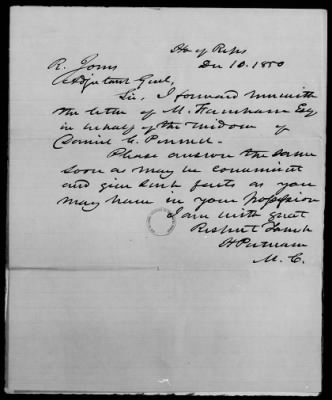 Ho of Reps
Dec 10. 1850
R. Jones
Adjutant Genl,
Sir, I forward herewith
the letter of M. Farnham Esq
in behalf of the widow of
Daniel C.
Please answer the same
soon as may be convenient
and give such facts as you
may have in your possession
I am with great
Respect
H Putnam
M. C.